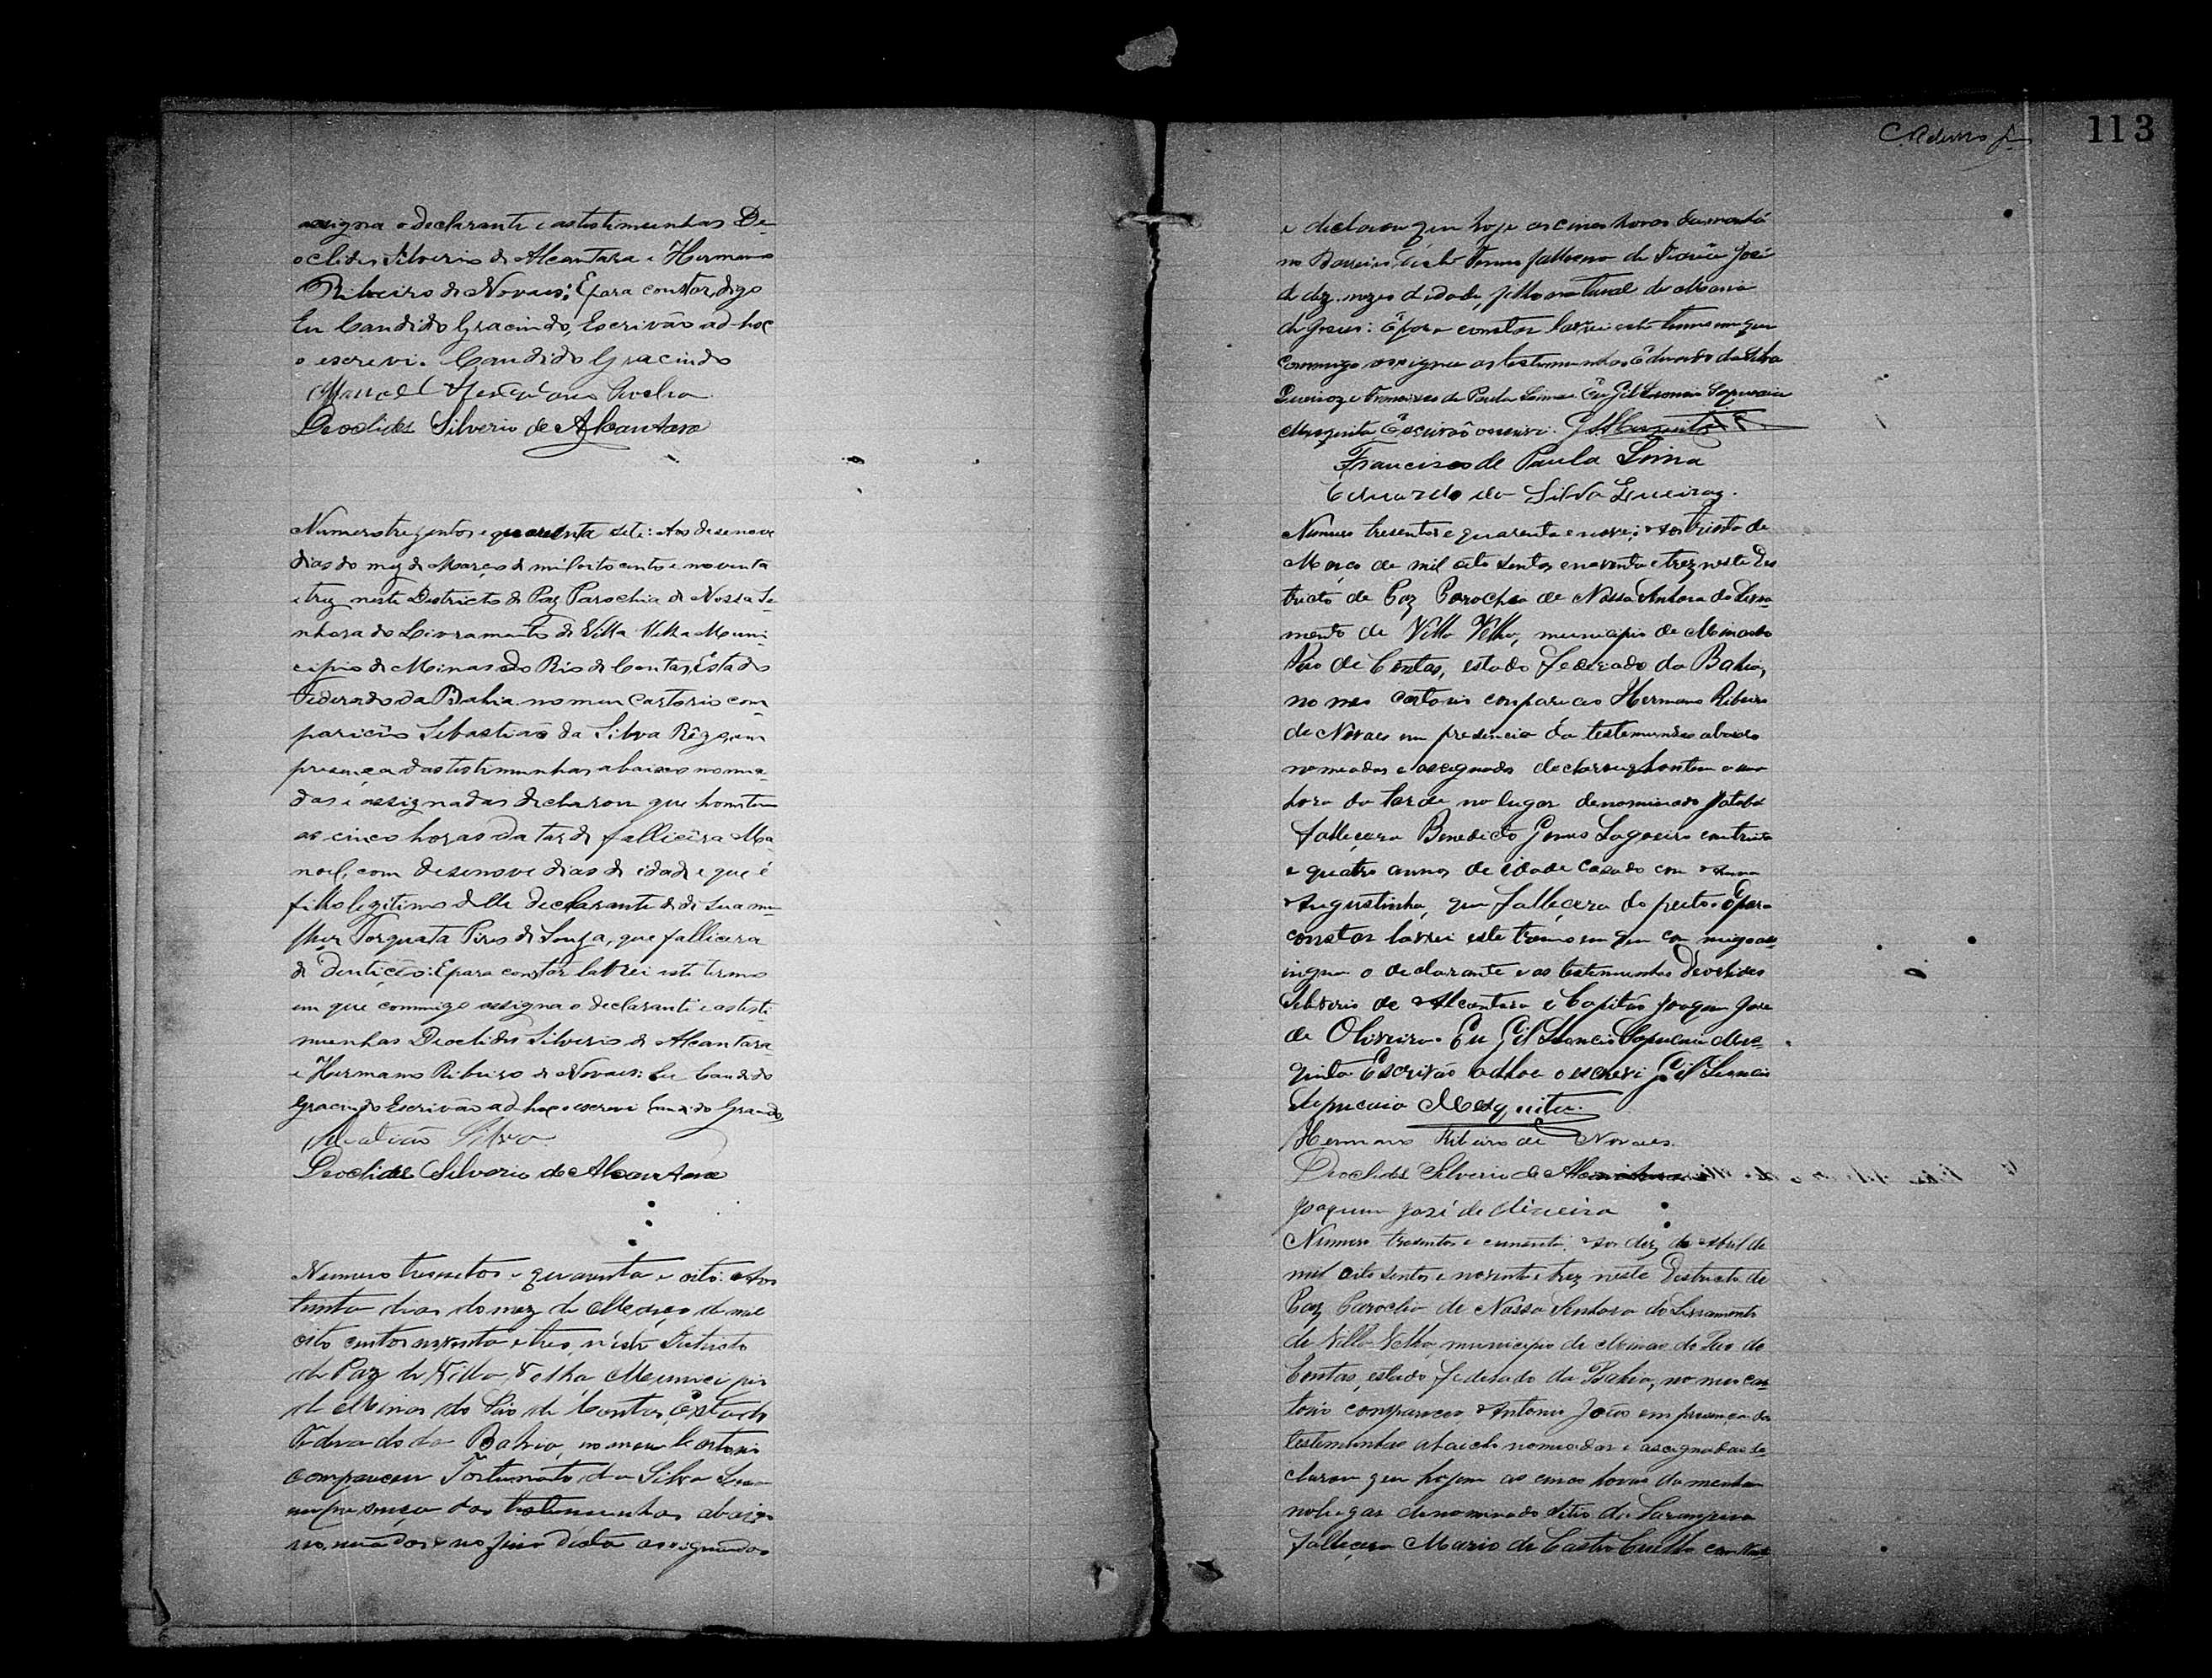 assigna o declarante e as testimunhas De-
oclides Silverio de Alcantara e Hermano
Ribeiro de Novaes: E para constar, digo
Eu Candido Gracindo, Escrivão ad-hoc
o escrevi. Candido Gracindo
Manoel
Deoclides Silverio de Alcantara
Numero trezentos e quarenta sete: Aos desenove
dias do mez de Março de mil oito cento e noventa
e trez neste Districto de Paz Parochia de Nossa Se-
nhora do Livramento de Villa Velha Muni-
cipio de Minas do Rio de Contas, Estado
Federado da Bahia no meu Cartorio com-
pariceo Sebastião da Silva Rêgo, em
presença das testimunhas abaixo nomea-
das e assignadas declarou que hontem
as cinco horas da tarde fallicêra Ma
noel, com desenove dias de idade e que é
filho legitimo delle declarante e de sua mu-
lher Torquata Pires de Souza, que fallicera
de dentição: E para constar lavrei este termo
em que commigo assigna o declarante e as testi-
munhas Deoclides Silverio de Alcantara
e Hermano Ribeiro de Novaes: Eu Candido
Gracindo Escrivão ad-hoc o escrevi Candido Gracindo
Silva
Deoclides Silverio de Alcantara
Numero tresentos e quarenta e oito: Aos
trinta dias do mez de Março de mil
oito centos noventa e tres, n'este Districto
de Paz de Villa Velha Municipio
de Minas do Rio de Contas, Estado
Federado da Bahia, no meu Cartorio
compareceu Fortunato da Silva
em presença das testemunhas abaixo
nomeadas e no fim desta assignadas
113
e declarou que hoje as cinco horas da manhã
no Barreiro deste Termo falleceo José
de dez mezes de idade, filho natural de Maria
de Jesus: E para constar lavrei este termo em que
commigo assigna as testemunhas Eduardo da Silva
Queiroz e Francisco de Paula Lima Eu Gil Sapucaia
Mesquita Escrivão o escrevi. G. Mesquita
Francisco de Paula Lima
Eduardo da Silva Queiroz.
Numero tresentos e quarenta e nove: Aos trinta de
Março de mil oito sentos e noventa e trez neste Des
tricto de Paz Parochia de Nossa Senhora do Livra-
mento de Villa Velha, municipio de Minas do
Rio de Contas, estado federado da Bahia,
no meo cartorio compareceo Hermano Ribeiro
de Novaes em presencia da testemunhas abaixo
nomeadas e assignadas declarou q hontem a uma
hora da tarde no lugar denominado Jatobá
falleçera Benedicto Gomes Lagoeiro com trinta
e quatro annos de idade casado com Anna
Augustinha, que falleçera do peito. E para
constar lavrei este termo em que com migo as-
signa o declarante e as testemunhas Deoclides
Silverio de Alcantara e Capitão Joaquim José
de Oliveira. Eu Gil Sapucaia Mes-
quita Escrivão adhoc o escrevi Gil
Sapucaia Mesquita.
Hermano Ribeiro de Novaes.
Deoclides Silverio de Alcantara
Joaquim José de Oliveira
Numero tresentos e cincoenta. Aos dez de Abril de
mil oito sentos e noventa e trez neste Destricto de
Paz Parochia de Nossa Senhora do Livramento
de Villa Velha, municipio de Minas do Rio de
Contas, estado federado da Bahia, no meu car-
torio compareceo Antonio João em presença das
testemunhas abaicho nomeadas e assignadas de
clarou que hoje as cinco horas da menham
no lugar denominado sitio da
falleçera Maria de Castro